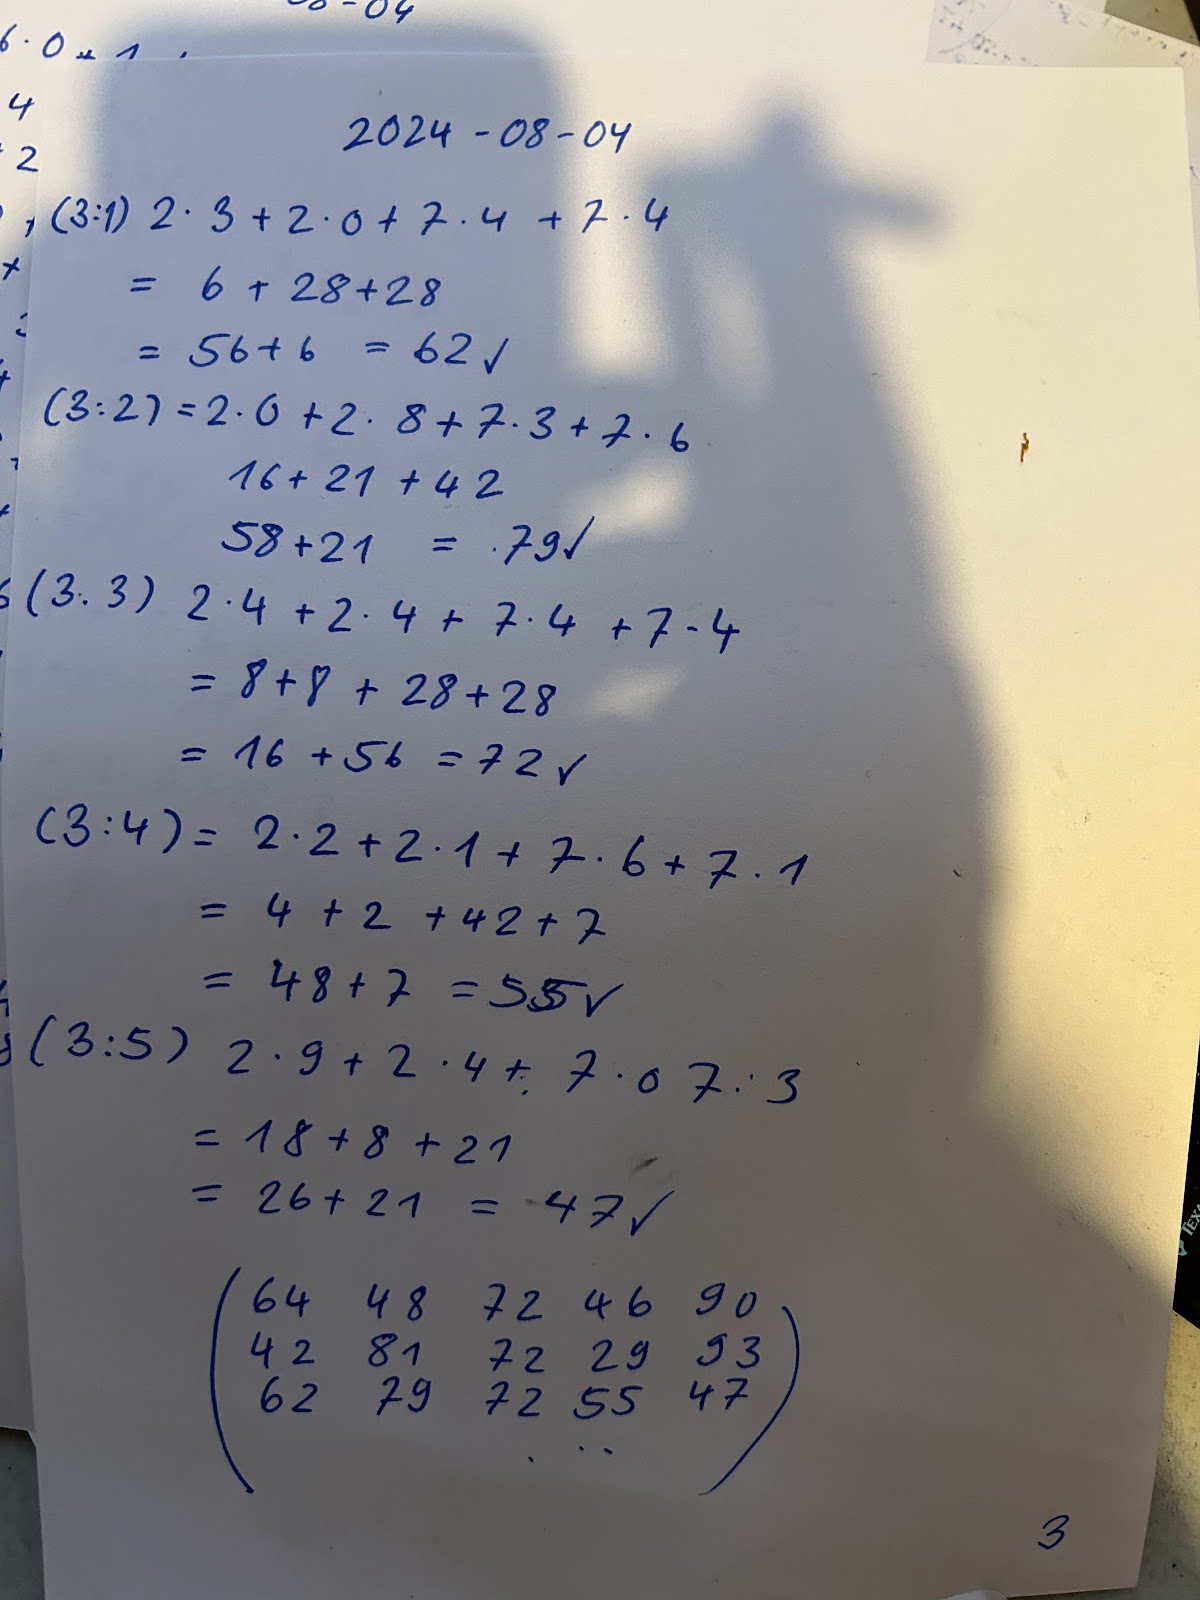 08-04
6·0+1
4
2
2024-08-04
(3:1) 2·3+2·0+7·4+7·4
= 6+28+28
= 56+6 = 62✓
(3:2)=2·0+2·8+7·3+7·6
16+21+42
58+21 = 79✓
(3.3) 2·4+2·4+7·4+7-4
= 8+8+28+28
= 16+56=72✓
(3:4)= 2·2+2·1+7·6+7·1
= 4+2+42+7
= 48+7 =55✓
(3:5) 2·9+2·4+7·0 7·3
= 18+8+21
= 26+21 = 47✓
64 48 72 46 90
42 81 72 29 93
62 79 72 55 47
. . .
3
TEXA